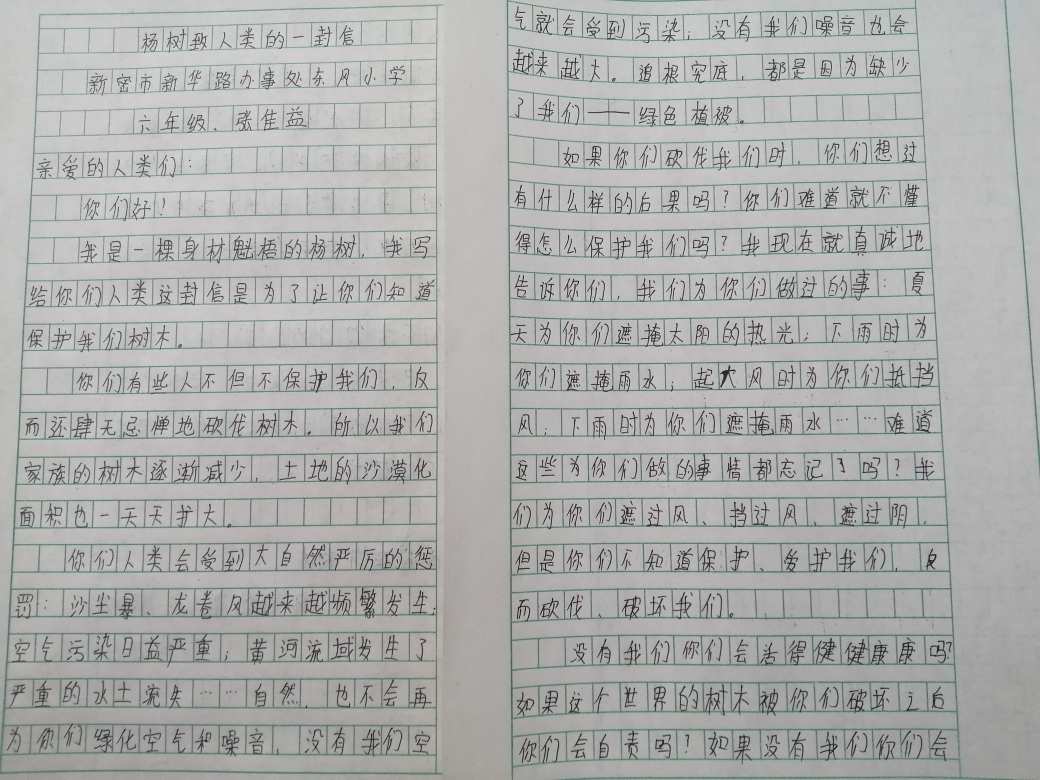 杨树致人类的一封信
新密市新华路办事处东风小学
六年级、张佳益
亲爱的人类们：
你们好！
我是一棵身材魁梧的杨树，我写
给你们人类这封信是为了让你们知道
保护我们树木。
你们有些人不但不保护我们，反
而还肆无忌惮地砍伐树木。所以我们
家族的树木逐渐减少，土地的沙漠化
面积也一天天扩大。
你们人类会受到大自然严厉的惩
罚：沙尘暴、龙卷风越来越频繁发生；
空气污染日益严重；黄河流域发生了
严重的水土流失……自然，也不会再
为你们绿化空气和噪音，没有我们空
气就会受到污染；没有我们噪音也会
越来越大。追根究底，都是因为缺少
了我们——绿色植被。
如果你们砍伐我们时，你们想过
有什么样的后果吗？你们难道就不懂
得怎么保护我们吗？我现在就真诚地
告诉你们，我们为你们做过的事：夏
天为你们遮掩太阳的热光；下雨时为
你们遮掩雨水；起大风时为你们抵挡
风；下雨时为你们遮掩雨水……难道
这些为你们做的事情都忘记了吗？我
们为你们遮过风、挡过风、遮过阴，
但是你们不知道保护、爱护我们，反
而砍伐、破坏我们。
没有我们你们会活得健健康康吗？
如果这个世界的树木被你们破坏之后
你们会自责吗？如果没有我们你们会